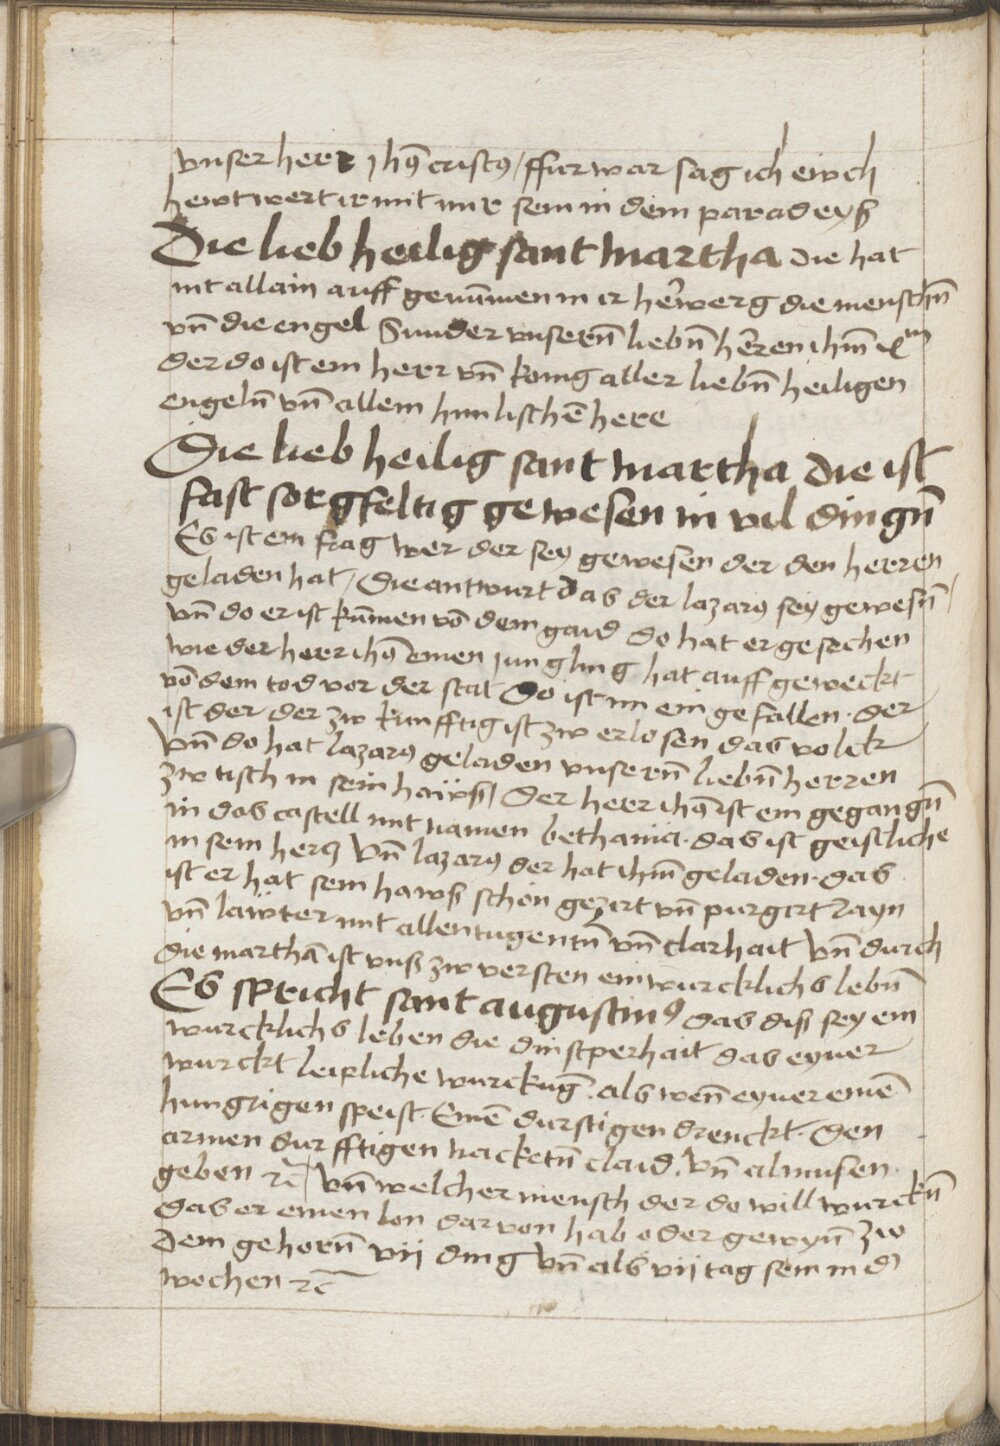 vnser herr ihꝯ cristꝯ / ffurwar sag ich ewch
hewt wert ir mit mir sein in dem paradeyß
Die lieb heilig sant martha die hat
nit allain auff genūmen in ir herwerg die menschñ
vñ die engel Sunder vnserñ liebñ herren ihm̄ xpm
der do ist ein herr vñ konig aller liebñ heiligen
engelñ vñ allem himlischē here
Die lieb heilig sant martha die ist
fast sorgfeltig gewesen in vil dingñ
Es ist ein frag wer der sey gewesen der den herren
geladen hat / Die antwurt das der lazarꝯ sey gewesñ /
vñ do er ist kūmen vō dem gaid do hat er gesechen
wie der herr ihꝯ einen jungling hat auff geweckt
vō dem tod vor der stat Do ist im ein gefallen · der
ist der der zw kunfftig ist zw erlosen das volck
vñ do hat lazarꝯ geladen vnserñ liebñ herren
zw tisch in sein hawß / Der herr ihꝯ ist ein gegangñ
in das castell mit namen bethania · das ist geistliche
in sein hercz Vñ lazarꝯ der hat ihm̄ geladen · das
ist er hat sein hawß schon gezirt vñ purgirt rayn
vñ lawter mit allen tugentñ vñ clarhait Vñ durch
die marthā ist vnß zw versten ein wurcklichs lebñ
Es spricht sant augustinꝯ das diß sey ein
wurcklichs leben die dinstperhait das eyner
wurckt leipliche wurckūg · als weñ eyner einē
hungrigen speist · Einē durstigen drenckt · den
armen durfftigen nacketñ claid · Vñ almusen
geben ꝛc̄ / Vñ welcher mensch der do will wurckñ
das er einen lon darvon hab oder gewyñ zw
dem gehorñ vij ding Vñ als vij tag sein in d'
wochen ꝛc̄